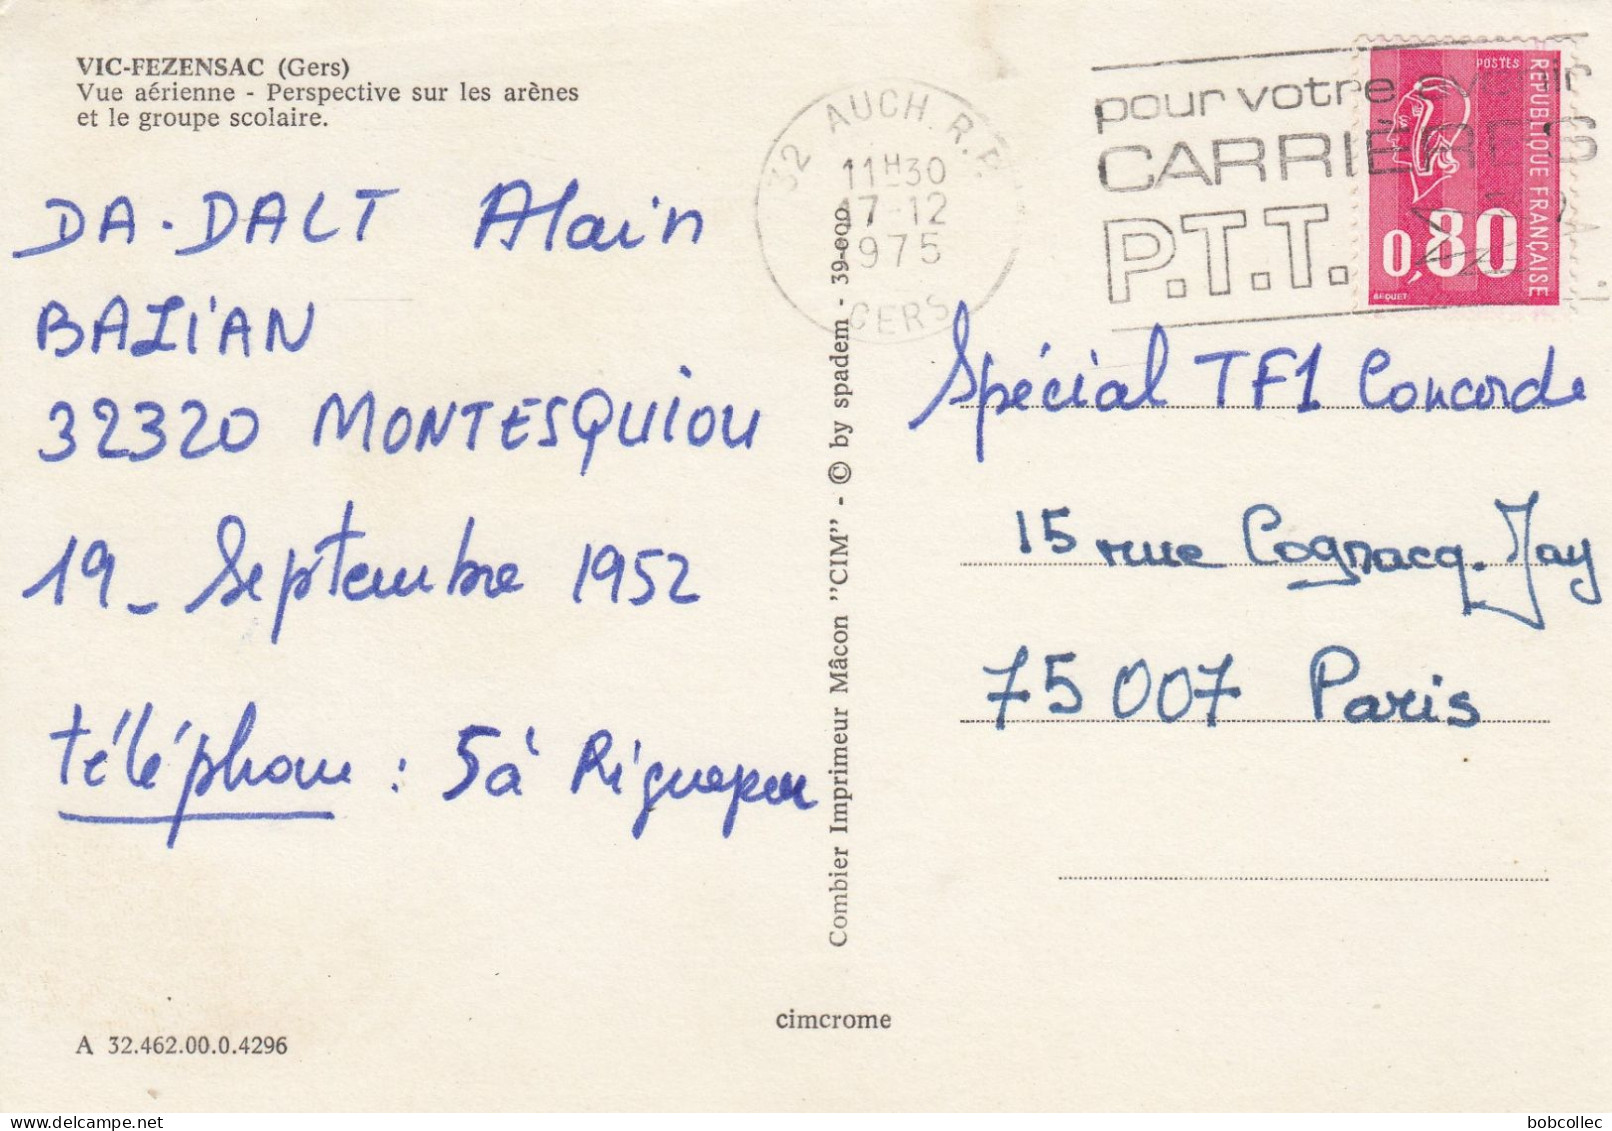 VIC-FEZENSAC (Gers)
Vue aérienne - Perspective sur les arènes
et le groupe scolaire.
DA-DALT Alain
BALIAN
32320 MONTESQUIOU
19 - Septembre 1952
téléphone : 5 à Riguepeu
A 32.462.00.0.4296
Combier Imprimeur Mâcon "CIM" - © by spadem - 39-000
cimcrome
32 AUCH R.P.
11H30
17-12
1975
GERS
pour votre avenir
CARRIÈRES
P.T.T.
POSTES
RÉPUBLIQUE FRANÇAISE
0,80
BEQUET
Spécial TF1 Concorde
15 rue Cognacq-Jay
75007 Paris
bobcollec